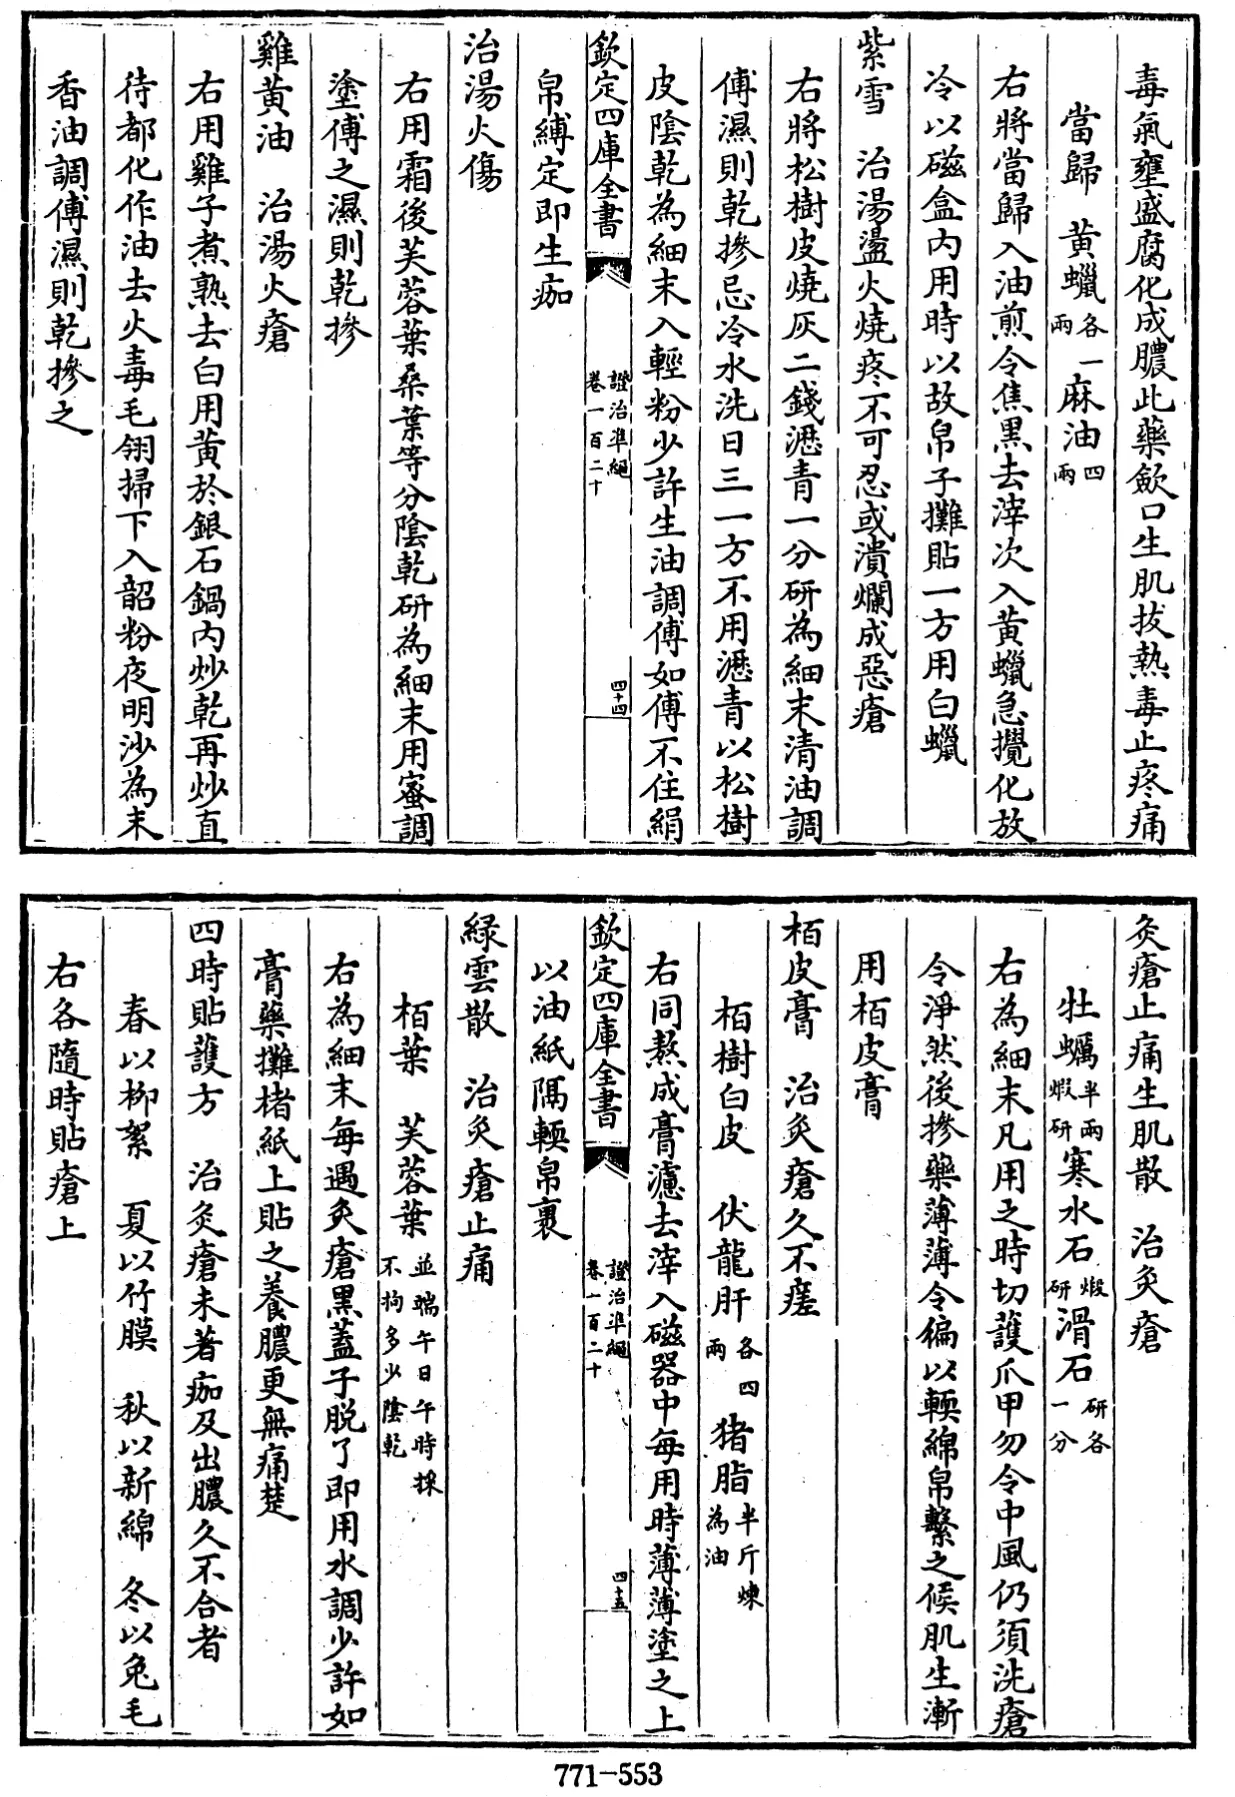 毒氣壅盛腐化成膿此藥歛口生肌拔熱毒止疼痛
當歸 黄蠟各一兩麻油四兩
右將當歸入油煎令焦黑去滓次入黄蠟急攪化放
冷以磁盒内用時以故帛子攤貼一方用白蠟
紫雪 治湯盪火燒疼不可忍或潰爛成惡瘡
右將松樹皮燒灰二錢瀝青一分研為細末清油調
傅濕則乾摻忌冷水洗日三一方不用瀝青以松樹
皮陰乾為細末入輕粉少許生油調傅如傅不住絹
欽定四庫全書
證治準繩
卷一百二十
四十四
帛縛定即生痂
治湯火傷
右用霜後芙蓉葉桑葉等分陰乾研為細末用蜜調
塗傅之濕則乾摻
雞黄油 治湯火瘡
右用雞子煮熟去白用黄於銀石鍋内炒乾再炒直
待都化作油去火毒毛翎掃下入韶粉夜明沙為末
香油調傅濕則乾摻之
灸瘡止痛生肌散 治灸瘡
牡蠣半兩煅研寒水石煅研滑石研各一分
右為細末凡用之時切護爪甲勿令中風仍須洗瘡
令淨然後摻藥薄薄令徧以輭綿帛繫之候肌生漸
用栢皮膏
栢皮膏 治灸瘡久不瘥
栢樹白皮 伏龍肝各四兩 猪脂半斤煉為油
右同熬成膏濾去滓入磁器中每用時薄薄塗之上
欽定四庫全書
證治準繩
卷一百二十
四十五
以油紙隔輭帛裹
緑雲散 治灸瘡止痛
栢葉 芙蓉葉並端午日午時採不拘多少陰乾
右為細末每遇灸瘡黑蓋子脱了即用水調少許如
膏藥攤楮紙上貼之養膿更無痛楚
四時貼護方 治灸瘡未著痂及出膿久不合者
春以栁絮 夏以竹膜 秋以新綿 冬以兔毛
右各隨時貼瘡上
771-553